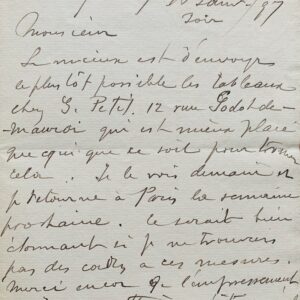 soir
Monsieur
Le mieux est d'envoyer
le plus tôt possible les tableaux
chez G. Petit 12 rue Godot de
Mauroi qui est mieux placé
que qui que ce soit pour trouver
cela. Je le vois demain et
je retourne à Paris la semaine
prochaine. Ce serait bien
étonnant si je ne trouvais
pas des cadres à ces mesures.
Merci encore de l'empressement